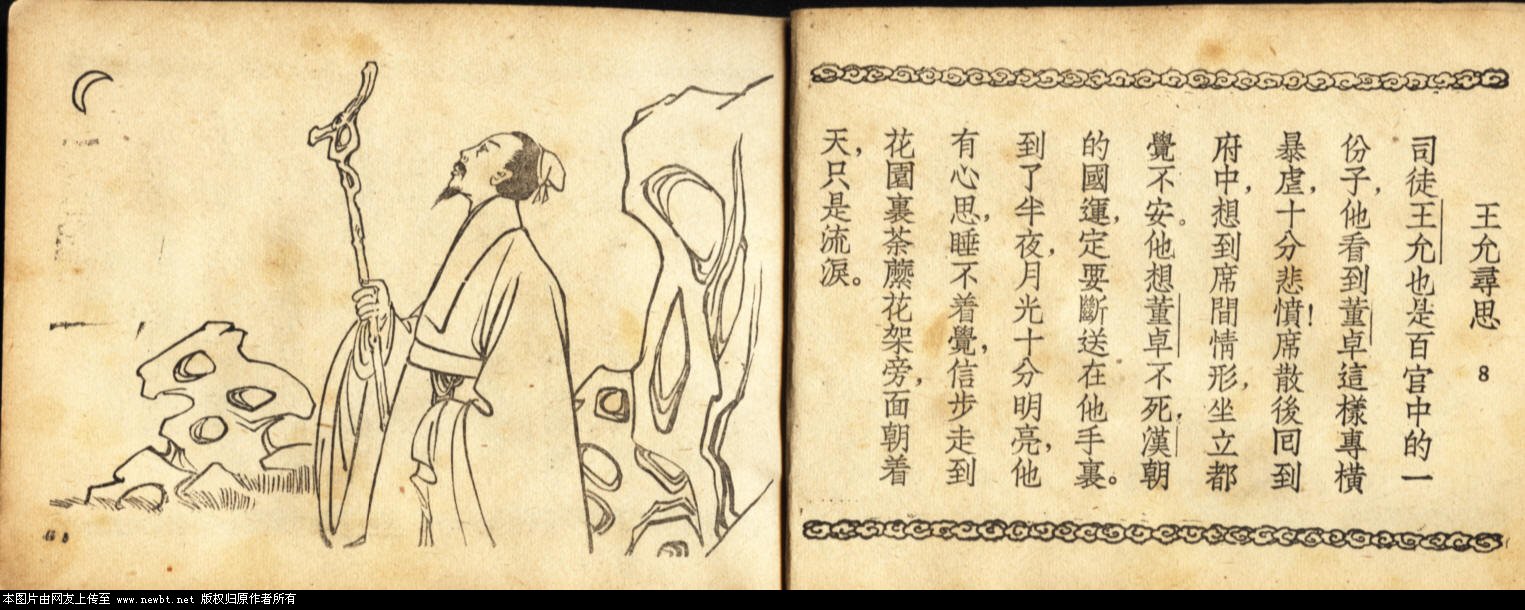 王允尋思 8
司徒王允也是百官中的一
份子，他看到董卓這樣專橫
暴虐，十分悲憤！席散後回到
府中，想到席間情形，坐立都
覺不安。他想董卓不死，漢朝
的國運，定要斷送在他手裏。
到了半夜，月光十分明亮，他
有心思，睡不着覺，信步走到
花園裏荼蘼花架旁，面朝着
天，只是流淚。
本图片由网友上传至 www.newbt.net 版权归原作者所有